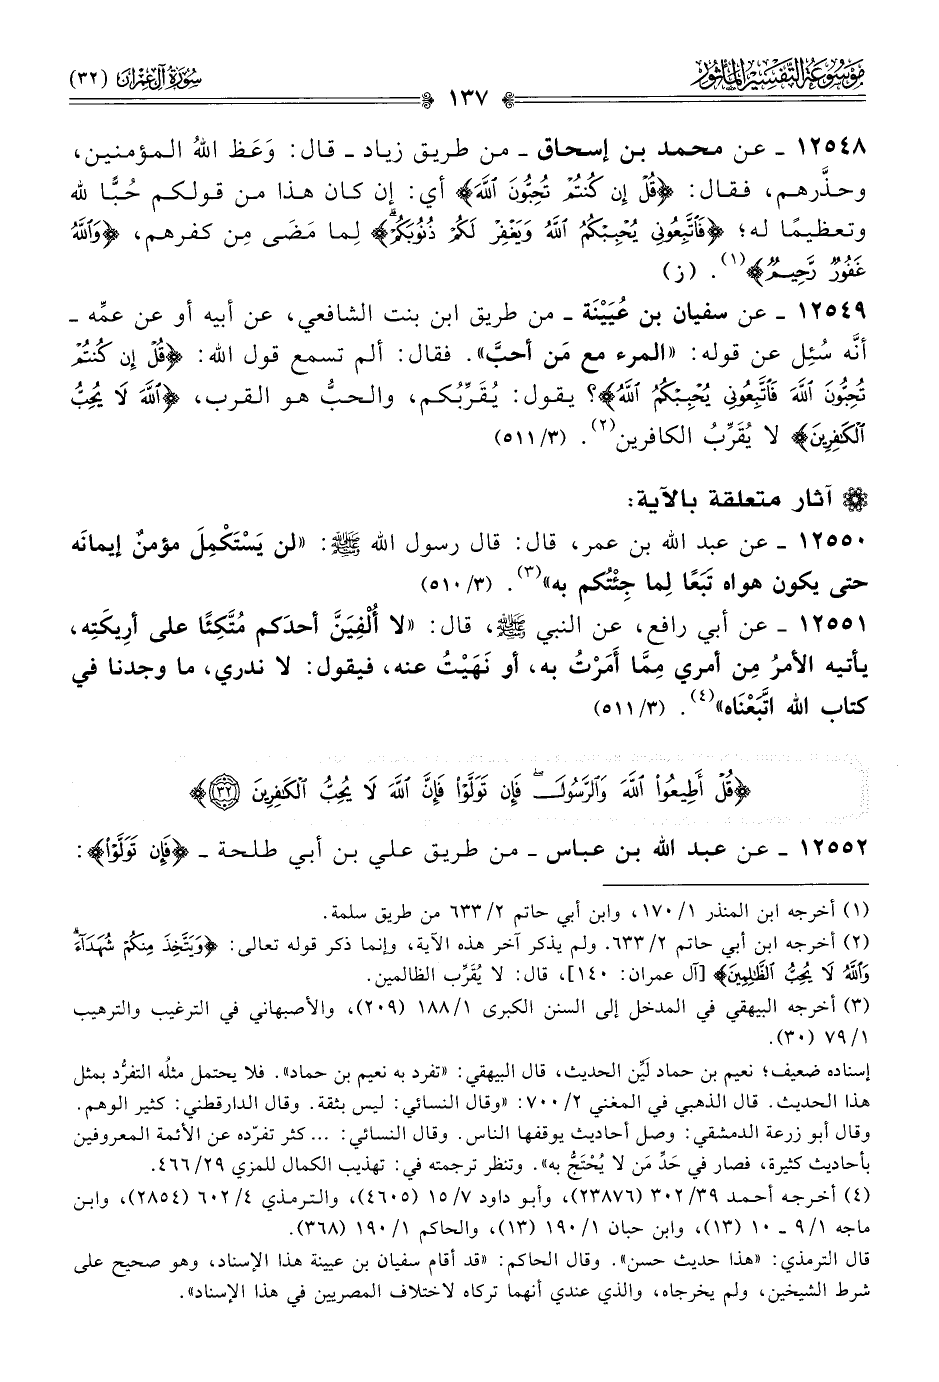 مَوْسُوعَة التَّفْسِيرِ المَأْثُور
سُورَةُ آلِ عِمْرَان (٣٢)
١٣٧
١٢٥٤٨ ـ عن محمد بن إسحاق ـ من طريق زياد ـ قال: وَعَظ اللهُ المؤمنين،
وحذَّرهم، فقال: ﴿قُلْ إِن كُنتُمْ تُحِبُّونَ ٱللَّهَ﴾ أي: إن كان هذا من قولكم حُبًّا لله
وتعظيمًا له؛ ﴿فَٱتَّبِعُونِى يُحْبِبْكُمُ ٱللَّهُ وَيَغْفِرْ لَكُمْ ذُنُوبَكُمْ﴾ لِما مَضَى مِن كفرهم، ﴿وَٱللَّهُ
غَفُورٌ رَّحِيمٌ﴾(١). (ز)
١٢٥٤٩ ـ عن سفيان بن عُيَيْنَة ـ من طريق ابن بنت الشافعي، عن أبيه أو عن عمِّه ـ
أنَّه سُئِل عن قوله: «المرء مع مَن أحبَّ». فقال: ألم تسمع قول الله: ﴿قُلْ إِن كُنتُمْ
تُحِبُّونَ ٱللَّهَ فَٱتَّبِعُونِى يُحْبِبْكُمُ ٱللَّهُ﴾؟ يقول: يُقَرِّبُكم، والحبُّ هو القرب، ﴿ٱللَّهَ لَا يُحِبُّ
ٱلْكَٰفِرِينَ﴾ لا يُقَرِّبُ الكافرين(٢). (٥١١/٣)
آثار متعلقة بالآية:
١٢٥٥٠ ـ عن عبد الله بن عمر، قال: قال رسول الله ﷺ: «لن يَسْتَكْمِلَ مؤمنٌ إيمانَه
حتى يكون هواه تَبَعًا لِما جِئْتُكم به»(٣). (٥١٠/٣)
١٢٥٥١ ـ عن أبي رافع، عن النبي ﷺ، قال: «لا أُلْفِيَنَّ أحدَكم مُتَّكِئًا على أريكَتِه،
يأتيه الأمرُ مِن أمري مِمَّا أَمَرْتُ به، أو نَهَيْتُ عنه، فيقول: لا ندري، ما وجدنا في
كتاب الله اتَّبَعْنَاه»(٤). (٥١١/٣)
﴿قُلْ أَطِيعُوا۟ ٱللَّهَ وَٱلرَّسُولَ ۖ فَإِن تَوَلَّوْا۟ فَإِنَّ ٱللَّهَ لَا يُحِبُّ ٱلْكَٰفِرِينَ ٣٢﴾
١٢٥٥٢ ـ عن عبد الله بن عباس ـ من طريق علي بن أبي طلحة ـ ﴿فَإِن تَوَلَّوْا۟﴾:
(١) أخرجه ابن المنذر ١/ ١٧٠، وابن أبي حاتم ٢/ ٦٣٣ من طريق سلمة.
(٢) أخرجه ابن أبي حاتم ٢/ ٦٣٣. ولم يذكر آخر هذه الآية، وإنما ذكر قوله تعالى: ﴿وَيَتَّخِذَ مِنكُمْ شُهَدَآءَ ۗ
وَٱللَّهُ لَا يُحِبُّ ٱلظَّٰلِمِينَ﴾ [آل عمران: ١٤٠]، قال: لا يُقَرِّب الظالمين.
(٣) أخرجه البيهقي في المدخل إلى السنن الكبرى ١/ ١٨٨ (٢٠٩)، والأصبهاني في الترغيب والترهيب
١/ ٧٩ (٣٠).
إسناده ضعيف؛ نعيم بن حماد لَيِّن الحديث، قال البيهقي: «تفرد به نعيم بن حماد». فلا يحتمل مثلُه التفرُّد بمثل
هذا الحديث. قال الذهبي في المغني ٢/ ٧٠٠: «وقال النسائي: ليس بثقة. وقال الدارقطني: كثير الوهم.
وقال أبو زرعة الدمشقي: وصل أحاديث يوقفها الناس. وقال النسائي: ... كثر تفرّده عن الأئمة المعروفين
بأحاديث كثيرة، فصار في حَدِّ مَن لا يُحْتَجُّ به». وتنظر ترجمته في: تهذيب الكمال للمزي ٢٩/ ٤٦٦.
(٤) أخرجه أحمد ٣٩/ ٣٠٢ (٢٣٨٧٦)، وأبو داود ٧/ ١٥ (٤٦٠٥)، والترمذي ٤/ ٦٠٢ (٢٨٥٤)، وابن
ماجه ١/ ٩ ـ ١٠ (١٣)، وابن حبان ١/ ١٩٠ (١٣)، والحاكم ١/ ١٩٠ (٣٦٨).
قال الترمذي: «هذا حديث حسن». وقال الحاكم: «قد أقام سفيان بن عيينة هذا الإسناد، وهو صحيح على
شرط الشيخين، ولم يخرجاه، والذي عندي أنهما تركاه لاختلاف المصريين في هذا الإسناد».